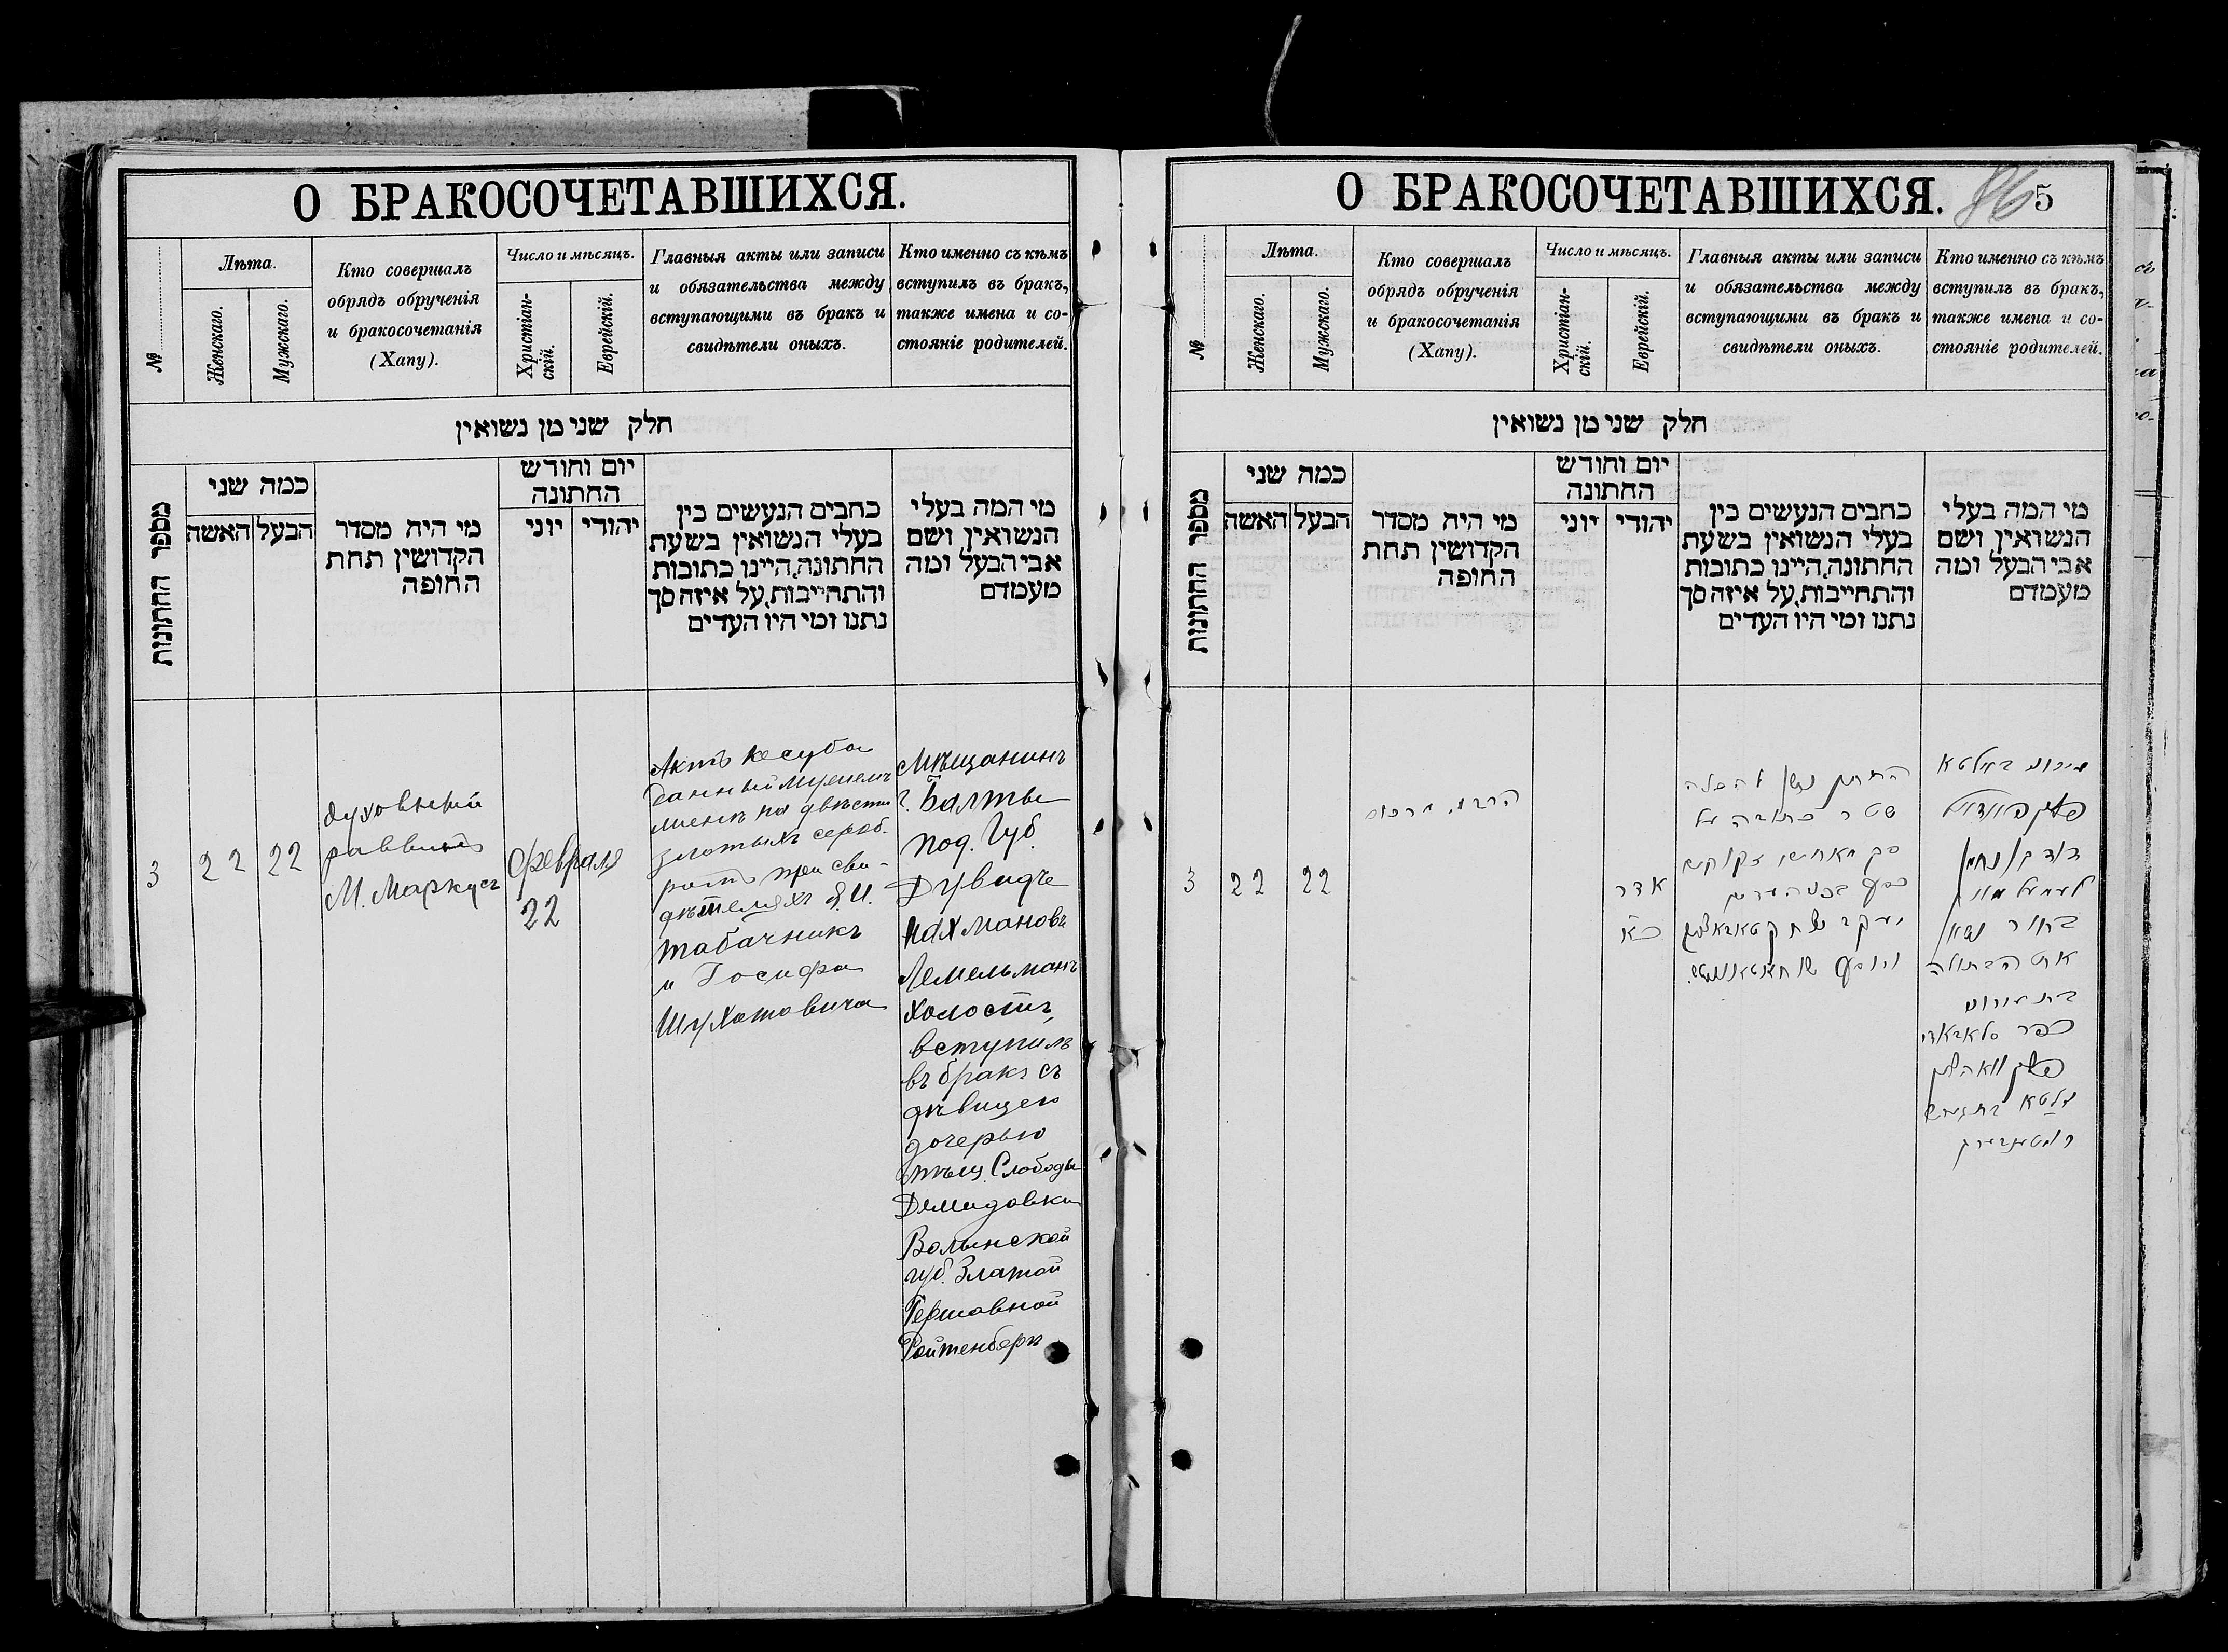 О БРАКОСОЧЕТАВШИХСЯ.
№
Лѣта.
Женскаго.
Мужскаго.
Кто совершалъ
обрядъ обрученія
и бракосочетанія
(Хапу).
Число и мѣсяцъ.
Христіан-
скій.
Еврейскій.
Главныя акты или записи
и обязательства между
вступающими въ бракъ и
свидѣтели оныхъ.
Кто именно съ кѣмъ
вступилъ въ бракъ,
также имена и со-
стояніе родителей.
חלק שני מן נשואין
מספר החתונות
כמה שני
הבעל
האשה
מי היה מסדר
הקדושין תחת
החופה
יום וחודש
החתונה
יהודי
יוני
כתבים הנעשים בין
בעלי הנשואין בשעת
החתונה, היינו כתובות
והתחייבות, על איזה סך
נתנו ומי היו העדים
מי המה בעלי
הנשואין ושם
אבי הבעל ומה
מעמדם
3
22
22
духовный
раввинъ
М. Маркусъ
Февраля
22
Актъ кесуба
данный мужемъ
женѣ на двѣсти
злотыхъ сереб.
ромъ при сви-
дѣтеляхъ Я.И.
Табачникъ
и Іосифа
Шухатовича
Мѣщанинъ
г. Балты
под. Губ.
Дувидъ
Нахмановъ
Лемельманъ
холостъ,
вступилъ
въ бракъ съ
дѣвицею
дочерью
мѣщ. Слободы
Демидовки
Волынской
губ. Златой
Гершовной
Ройтенберг
О БРАКОСОЧЕТАВШИХСЯ.
86
5
№
Лѣта.
Женскаго.
Мужскаго.
Кто совершалъ
обрядъ обрученія
и бракосочетанія
(Хапу).
Число и мѣсяцъ.
Христіан-
скій.
Еврейскій.
Главныя акты или записи
и обязательства между
вступающими въ бракъ и
свидѣтели оныхъ.
Кто именно съ кѣмъ
вступилъ въ бракъ,
также имена и со-
стояніе родителей.
חלק שני מן נשואין
מספר החתונות
כמה שני
הבעל
האשה
מי היה מסדר
הקדושין תחת
החופה
יום וחודש
החתונה
יהודי
יוני
כתבים הנעשים בין
בעלי הנשואין בשעת
החתונה, היינו כתובות
והתחייבות, על איזה סך
נתנו ומי היו העדים
מי המה בעלי
הנשואין ושם
אבי הבעל ומה
מעמדם
3
22
22
הרב מ. מרכוס
אדר
כא
החתן נתן להכלה
שטר כתובה על
סך מאתים זקוקים
כסף בפני העדים
יעקב יצחק טאבאטשניק
ויוסף
מעיר באלטא
דוד בן נחמן
לעמעלמאן
בחור נשא
את הבתולה
בת מעיר
כפר
זלאטא
רויטענבערג